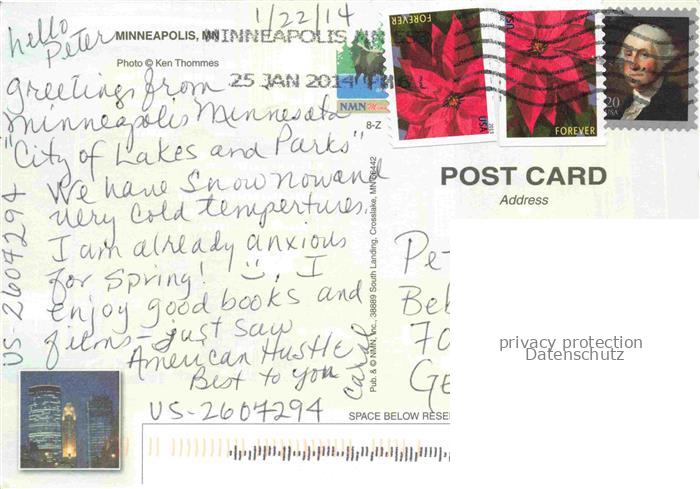 1/22/14
hello
Peter
MINNEAPOLIS, MN
MINNEAPOLIS MN 553
Photo © Ken Thommes
25 JAN 2014 PM 6 L
greetings from
Minneapolis Minnesota
"City of Lakes and Parks"
We have snow now and
very cold tempertures.
I am already anxious
for spring! I
enjoy good books and
films - just saw
American Hustle
Best to you
Carol
US-2607294
US-2607294
NMN Inc.
8-Z
Pub. & © NMN, Inc., 38889 South Landing, Crosslake, MN 56442
FOREVER
USA
2013
USA
FOREVER
20
USA
POST CARD
Address
Pet
Bel
70
GE
privacy protection
Datenschutz
SPACE BELOW RESE